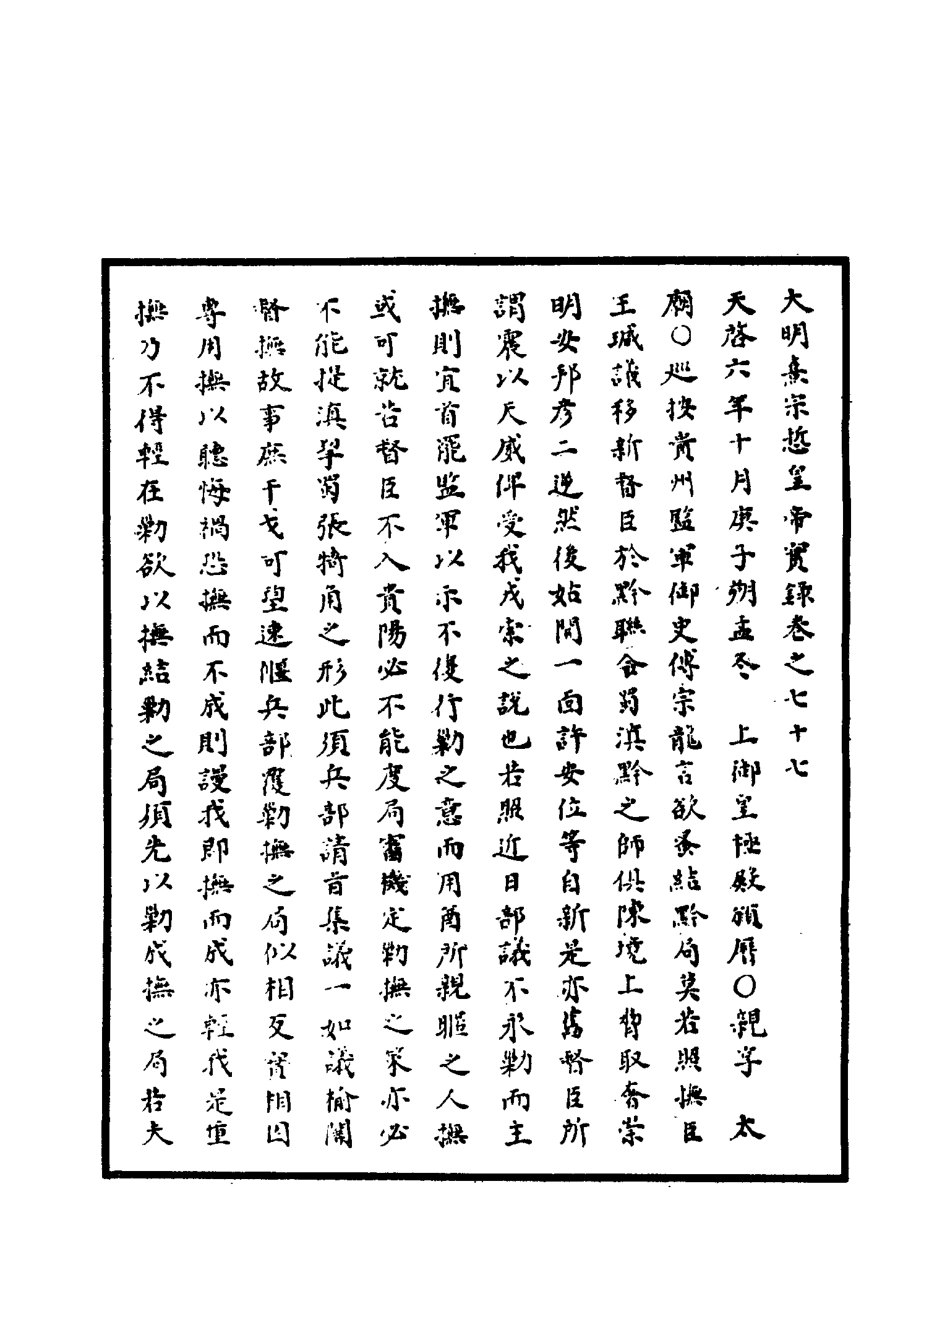 大明熹宗悊皇帝實錄卷之七十七
天啓六年十月庚子朔孟冬 上御皇極殿頒曆〇親享 太
廟〇巡按貴州監軍御史傅宗龍言欲蚤結黔局莫若照撫臣
王瑊議移新督臣於黔聯合蜀滇黔之師俱陳境上暫取奢崇
明安邦彥二逆然後姑開一面許安位等自新是亦舊督臣所
謂震以天威俾受我戎索之說也若照近日部議不永勦而主
撫則宜首罷監軍以示不復行勦之意而用酋所親暱之人撫
或可就若督臣不入貴陽必不能度局審機定勦撫之策亦必
不能提滇挈蜀張犄角之形此須兵部請旨集議一如議榆關
督撫故事庶干戈可望速偃兵部覆勦撫之局似相反實相因
專用撫以聽悔禍恐撫而不成則謾我即撫而成亦輕我是重
撫乃不得輕在勦欲以撫結勦之局須先以勦成撫之局若夫